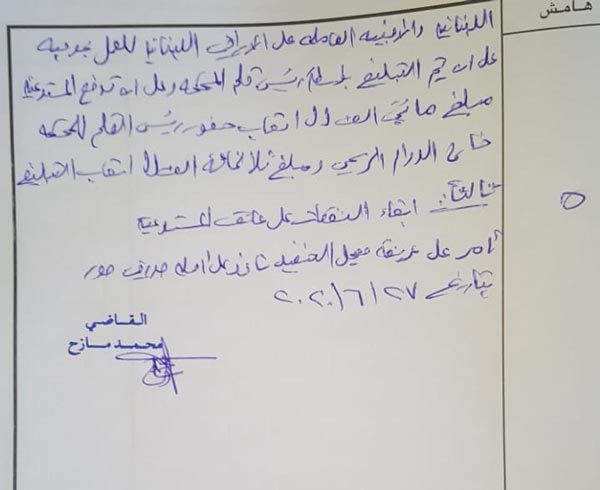 هامش
اللبنانية والاجنبية العاملة على الاراضي اللبنانية للعمل بموجبه
على ان يتم التبليغ بواسطة رئيس قلم المحكمة وعلى ان تدفع المستدعية
مبلغ مائتي الف ل.ل اتعاب حضور رئيس القلم للمحكمة
خارج الدوام الرسمي ومبلغ ثلاثماية الف ل.ل اتعاب التبليغ
ثالثاً: ابقاء النفقات على عاتق المستدعية
أمر على عريضة معجل التنفيذ نافذ على اصله صدر في صور
بتاريخ ٢٧/٦/٢٠٢٠
القاضي
محمد مازح